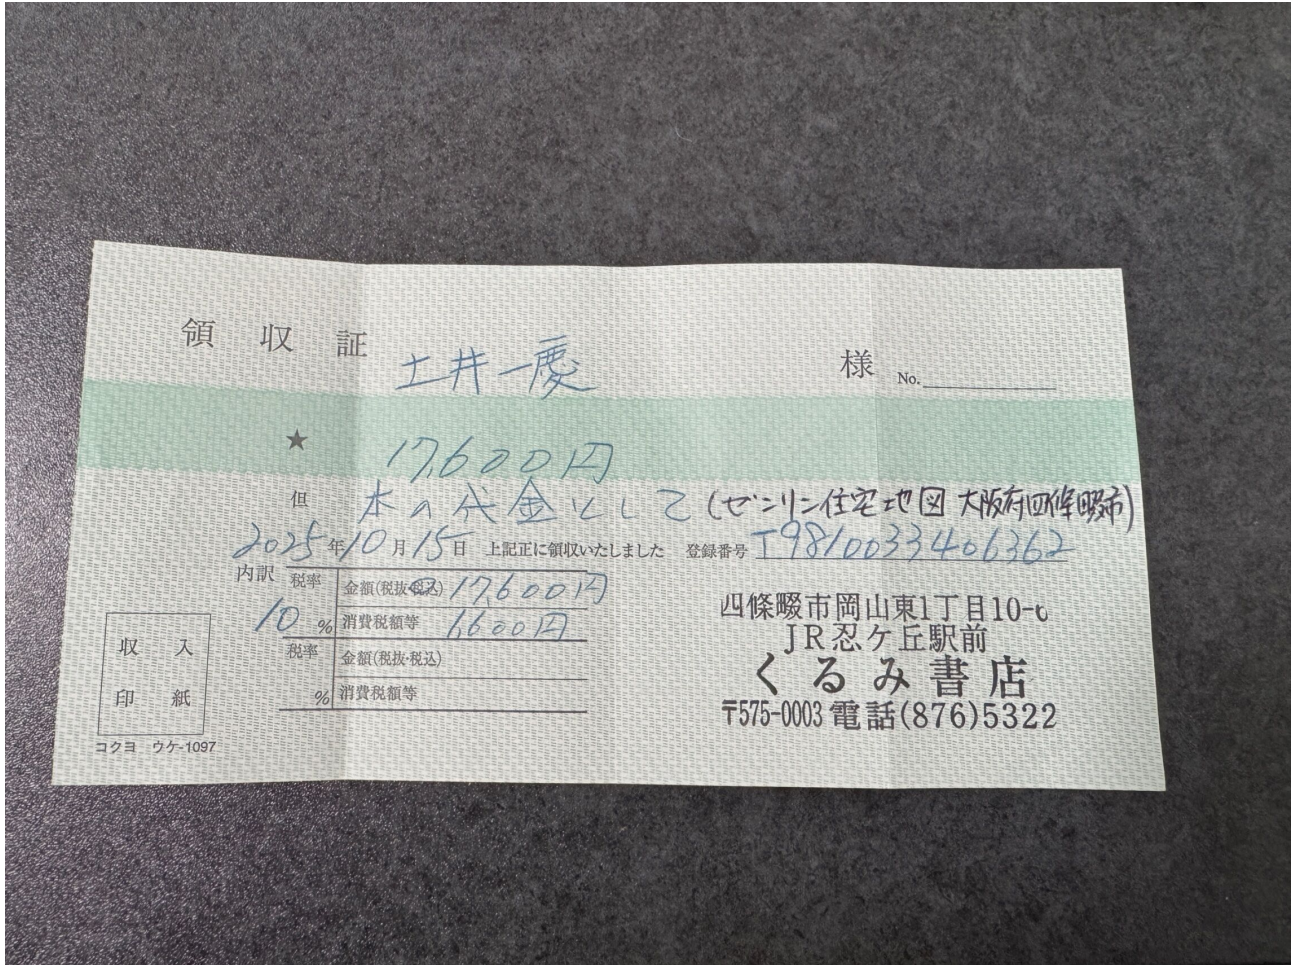 領収証 土井一慶 様 No.
★ 17,600円
但 本の代金として (ゼンリン住宅地図 大阪府四條畷市)
2025年10月15日 上記正に領収いたしました 登録番号 T9810033406362
内訳 税率 10% 金額(税抜・税込) 17,600円
消費税額等 1,600円
税率 % 金額(税抜・税込)
消費税額等
収入
印紙
コクヨ ウケ-1097
四條畷市岡山東1丁目10-6
JR忍ケ丘駅前
くるみ書店
〒575-0003 電話(876)5322